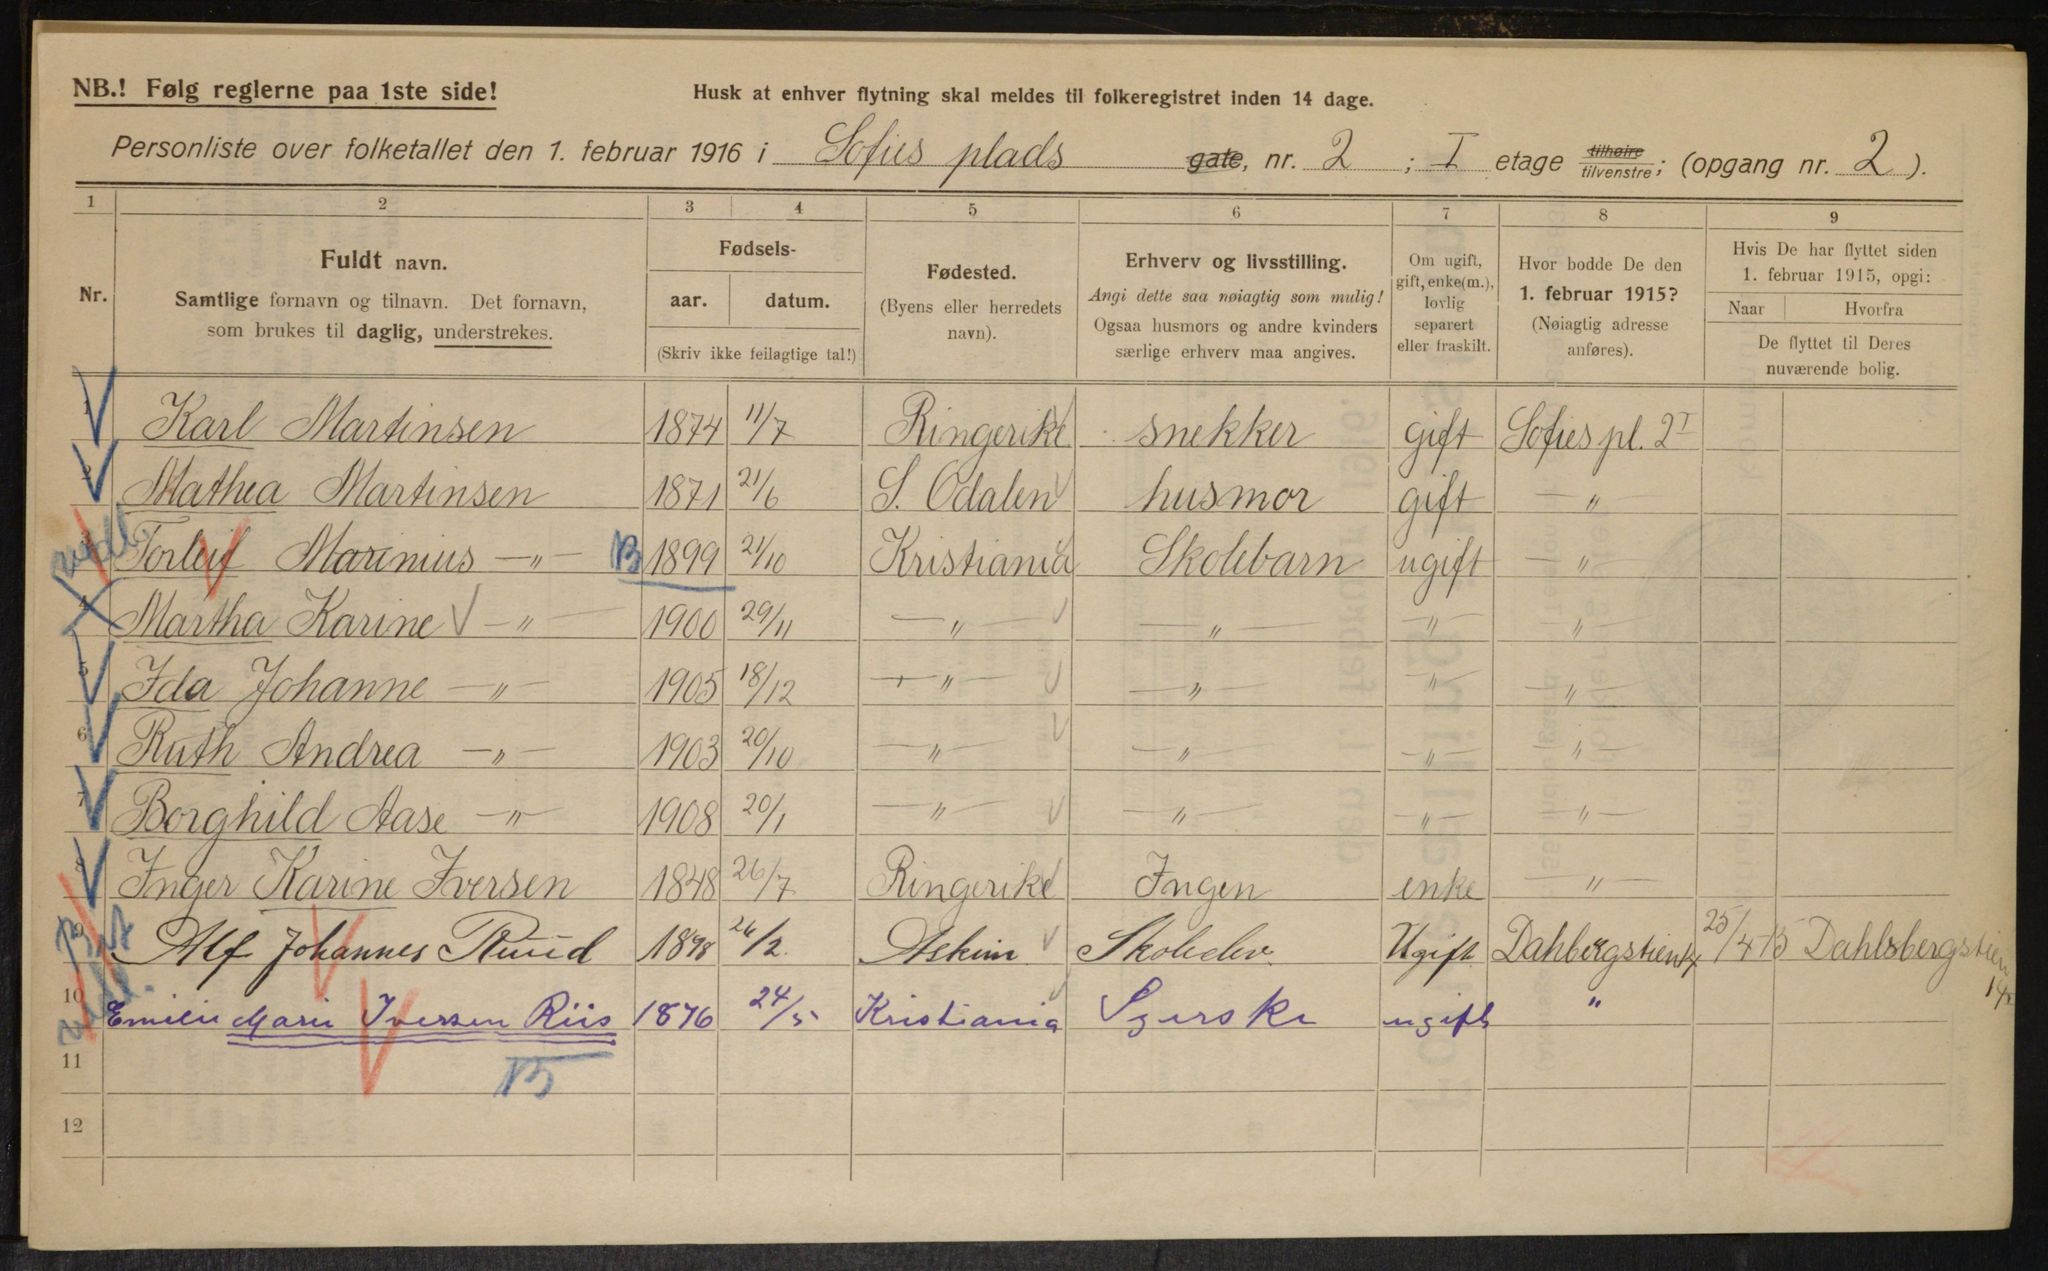 NB.! Følg reglerne paa 1ste side!
Husk at enhver flytning skal meldes til folkeregistret inden 14 dage.
Personliste over folketallet den 1. februar 1916 i Sofies plads gate, nr. 2 ; I etage tilhøire tilvenstre; (opgang nr. 2 ).
1 2 3 4 5 6 7 8 9
Nr.
Fuldt navn.
Samtlige fornavn og tilnavn. Det fornavn,
som brukes til daglig, understrekes.
Fødsels-
aar. datum.
(Skriv ikke feilagtige tal!)
Fødested.
(Byens eller herredets
navn).
Erhverv og livsstilling.
Angi dette saa nøiagtig som mulig!
Ogsaa husmors og andre kvinders
særlige erhverv maa angives.
Om ugift,
gift, enke(m.),
lovlig
separert
eller fraskilt.
Hvor bodde De den
1. februar 1915?
(Nøiagtig adresse
anføres).
Hvis De har flyttet siden
1. februar 1915, opgi:
Naar Hvorfra
De flyttet til Deres
nuværende bolig.
1 Karl Martinsen 1874 11/7 Ringerike snekker gift Sofies pl. 2 I
2 Mathea Martinsen 1871 21/6 S. Odalen husmor gift — " —
3 Torleif Marinius — " — B 1899 21/10 Kristiania Skolebarn ugift — " —
4 Martha Karine — " — 1900 29/11 — " — — " — — " — — " —
5 Ida Johanne — " — 1905 18/12 — " — — " — — " — — " —
6 Ruth Andrea — " — 1903 20/10 — " — — " — — " — — " —
7 Borghild Aase — " — 1908 20/1 — " — — " — — " — — " —
8 Inger Karine Iversen 1848 26/7 Ringerike Ingen enke — " —
9 Alf Johannes Ruud 1898 26/2. Askim Skoleelev Ugift Dahlbergstien 25/4-15 Dahlsbergstien
10 Emilie Marie Iversen Riis 1876 24/5 Kristiania Syerske ugift "
11 B
12